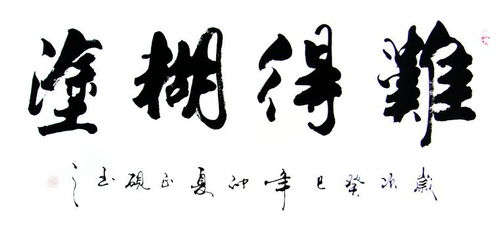 難得糊塗
歲次癸巳年仲夏正硯書之